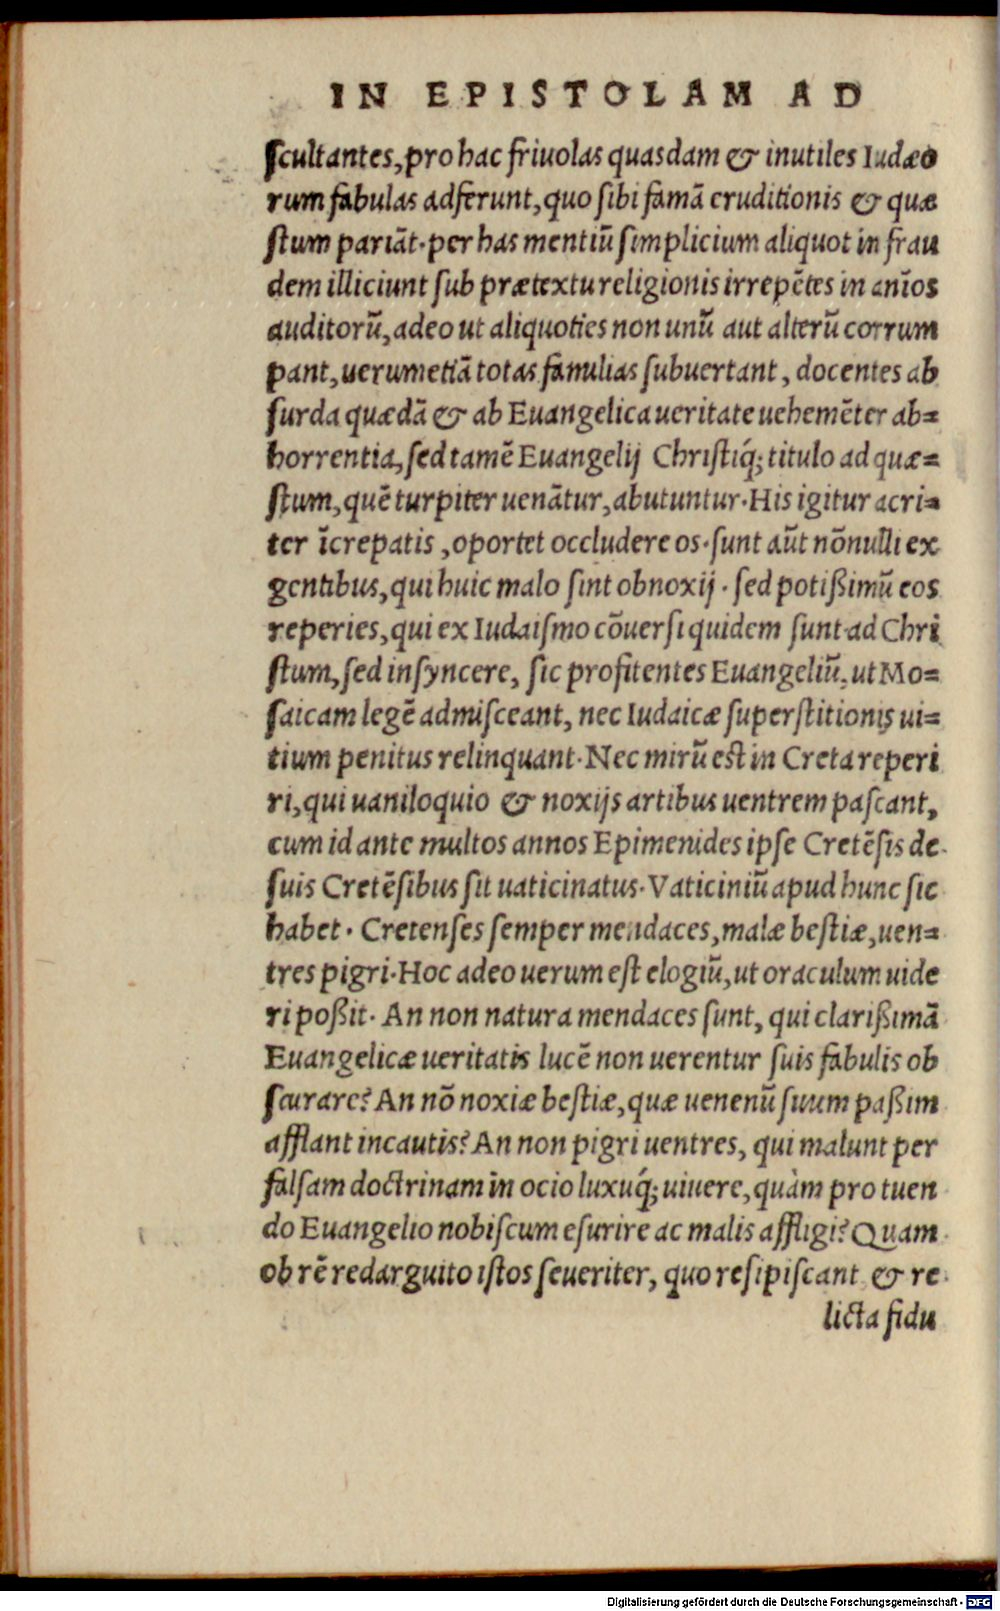 IN EPISTOLAM AD
ſcultantes, pro hac friuolas quasdam & inutiles Iudæo
rum fabulas adferunt, quo ſibi famã eruditionis & quæ
ſtum pariãt. per has mentiũ ſimplicium aliquot in frau
dem illiciunt ſub prætextu religionis irrepẽtes in anĩos
auditorũ, adeo ut aliquoties non unũ aut alterũ corrum
pant, uerumetiã totas familias ſubuertant, docentes ab
ſurda quædã & ab Euangelica ueritate uehemẽter ab=
horrentia, ſed tamẽ Euangelij Chriſtiq́; titulo ad quæ=
ſtum, quẽ turpiter uenãtur, abutuntur. His igitur acri=
ter ĩcrepatis, oportet occludere os. ſunt aũt nõnulli ex
gentibus, qui huic malo ſint obnoxij. ſed potißimũ eos
reperies, qui ex Iudaiſmo cõuerſi quidem ſunt ad Chri
ſtum, ſed inſyncere, ſic profitentes Euangeliũ, ut Mo=
ſaicam legẽ admiſceant, nec Iudaicæ ſuperſtitionis ui=
tium penitus relinquant. Nec mirũ est in Creta reperi
ri, qui uaniloquio & noxijs artibus uentrem paſcant,
cum id ante multos annos Epimenides ipſe Cretẽſis de
ſuis Cretẽſibus ſit uaticinatus. Vaticiniũ apud hunc ſic
habet. Cretenſes ſemper mendaces, malæ beſtiæ, uen=
tres pigri. Hoc adeo uerum eſt elogiũ, ut oraculum uide
ri poßit. An non natura mendaces ſunt, qui clarißimã
Euangelicæ ueritatis lucẽ non uerentur ſuis fabulis ob
ſcurare? An nõ noxiæ beſtiæ, quæ uenenũ ſuum paßim
afflant incautis? An non pigri uentres, qui malunt per
falſam doctrinam in ocio luxuq́; uiuere, quàm pro tuen
do Euangelio nobiſcum eſurire ac malis affligi? Quam
ob rẽ redarguito iſtos ſeueriter, quo reſipiſcant & re
licta fidu
Digitalisierung gefördert durch die Deutsche Forschungsgemeinschaft - DFG